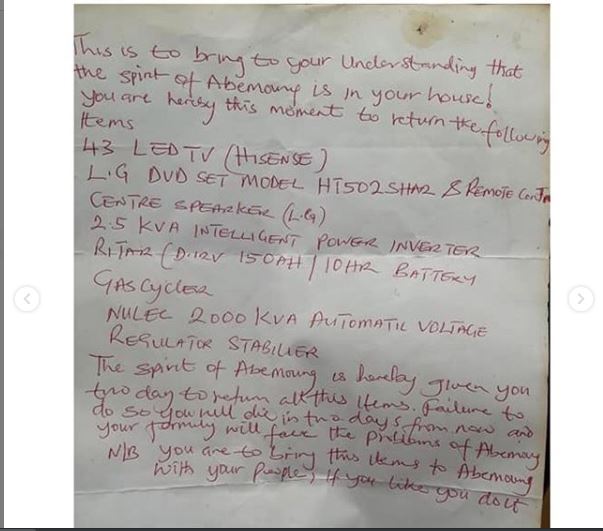 This is to bring to your Understanding that
the spirit of Abemoung is in your house!
you are hereby this moment to return the following
Items
43 LED TV (HISENSE)
L.G DVD SET MODEL HT502SHAR & REMOTE Contr
CENTRE SPEARKER (L.G)
2.5 KVA INTELLIGENT POWER INVERTER
RITAR (D.12V 150AH/10HR BATTERY
GAS CYCLER
NULEC 2000 KVA AUTOMATIC VOLTAGE
REGULATOR STABILIER
The Spirit of Abemoung is hereby given you
two day to return all this Items. Failure to
do so you will die in two days from now and
your family will face the problems of Abemoung
N/B you are to bring this items to Abemoung
with your people, if you like you do it